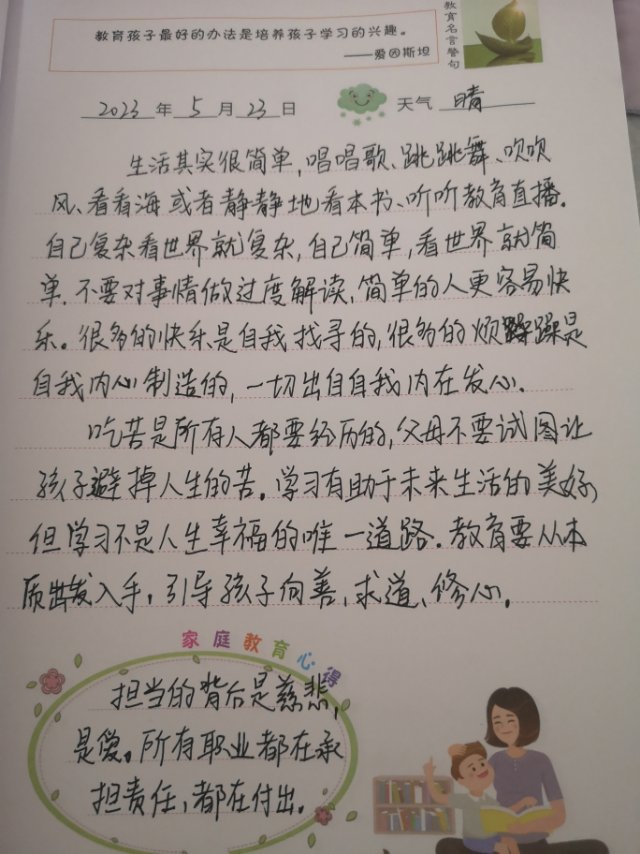 教育孩子最好的办法是培养孩子学习的兴趣。
——爱因斯坦
教育名言警句
2023年5月23日 天气 晴
生活其实很简单,唱唱歌、跳跳舞、吹吹
风、看看海或者静静地看本书、听听教育直播。
自己复杂看世界就复杂,自己简单,看世界就简
单.不要对事情做过度解读,简单的人更容易快
乐。很多的快乐是自我找寻的,很多的烦躁是
自我内心制造的,一切出自自我内在发心.
吃苦是所有人都要经历的,父母不要试图让
孩子避掉人生的苦。学习有助于未来生活的美好,
但学习不是人生幸福的唯一道路.教育要从本
质出发入手,引导孩子向善、求道、修心。
家庭教育心得
担当的背后是慈悲,
是爱。所有职业都在承
担责任,都在付出。